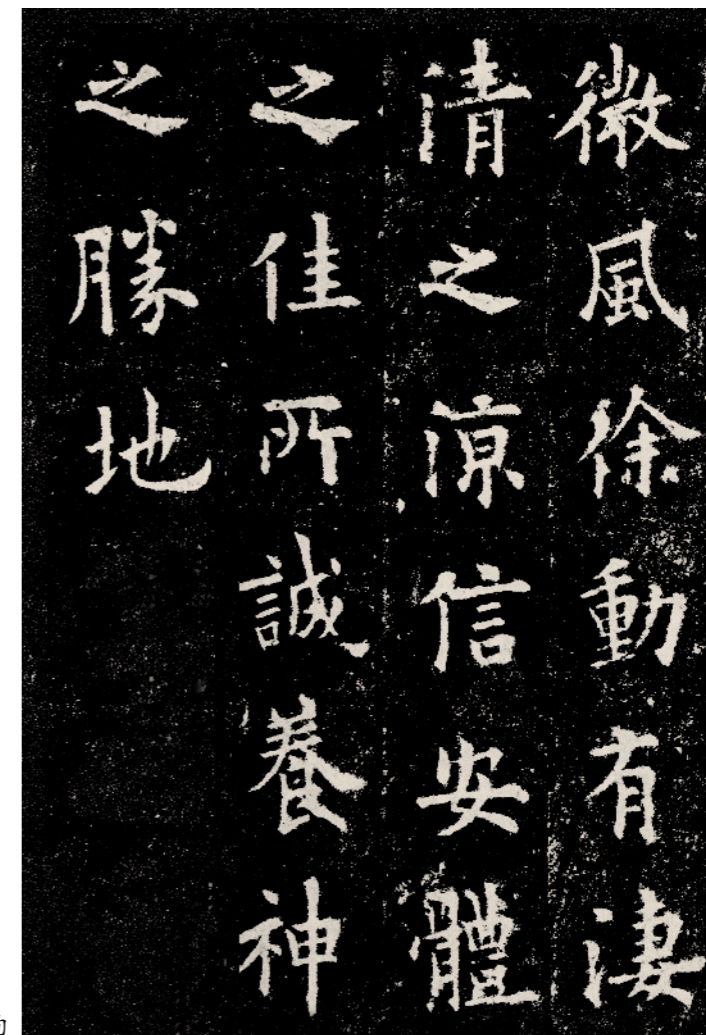 微風徐動有淒
清之涼信安體
之佳所誠養神
之勝地